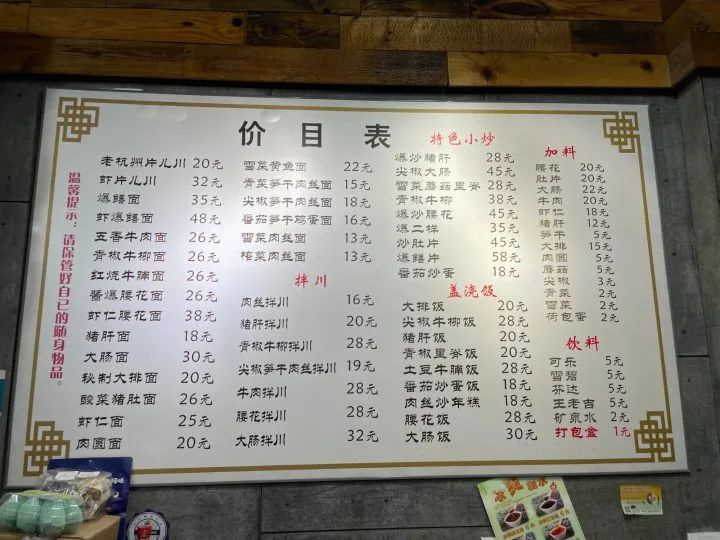 价目表
温馨提示：请保管好自己的随身物品。
老杭州片儿川 20元
虾片儿川 32元
爆鳝面 35元
虾爆鳝面 48元
五香牛肉面 26元
青椒牛柳面 26元
红烧牛腩面 26元
酱爆腰花面 26元
虾仁腰花面 38元
猪肝面 18元
大肠面 30元
秘制大排面 20元
酸菜猪肚面 26元
虾仁面 25元
肉圆面 20元
雪菜黄鱼面 22元
青菜笋干肉丝面 15元
尖椒笋干肉丝面 18元
番茄笋干鸡蛋面 16元
雪菜肉丝面 13元
榨菜肉丝面 13元
拌川
肉丝拌川 16元
猪肝拌川 20元
青椒牛柳拌川 28元
尖椒笋干肉丝拌川 19元
牛肉拌川 28元
腰花拌川 28元
大肠拌川 32元
特色小炒
爆炒猪肝 28元
尖椒大肠 45元
雪菜蘑菇里脊 28元
青椒牛柳 38元
爆炒腰花 45元
爆二样 35元
炒肚片 45元
爆鳝片 58元
番茄炒蛋 18元
盖浇饭
大排饭 20元
尖椒牛柳饭 28元
猪肝饭 20元
青椒里脊饭 20元
土豆牛腩饭 28元
番茄炒蛋饭 18元
肉丝炒年糕 18元
腰花饭 28元
大肠饭 30元
加料
腰花 20元
肚片 20元
大肠 22元
牛肉 20元
虾仁 18元
猪肝 12元
笋干 5元
大排 15元
肉圆 5元
蘑菇 5元
尖椒 3元
青菜 2元
雪菜 2元
荷包蛋 2元
饮料
可乐 5元
雪碧 5元
芬达 5元
王老吉 5元
矿泉水 2元
打包盒 1元